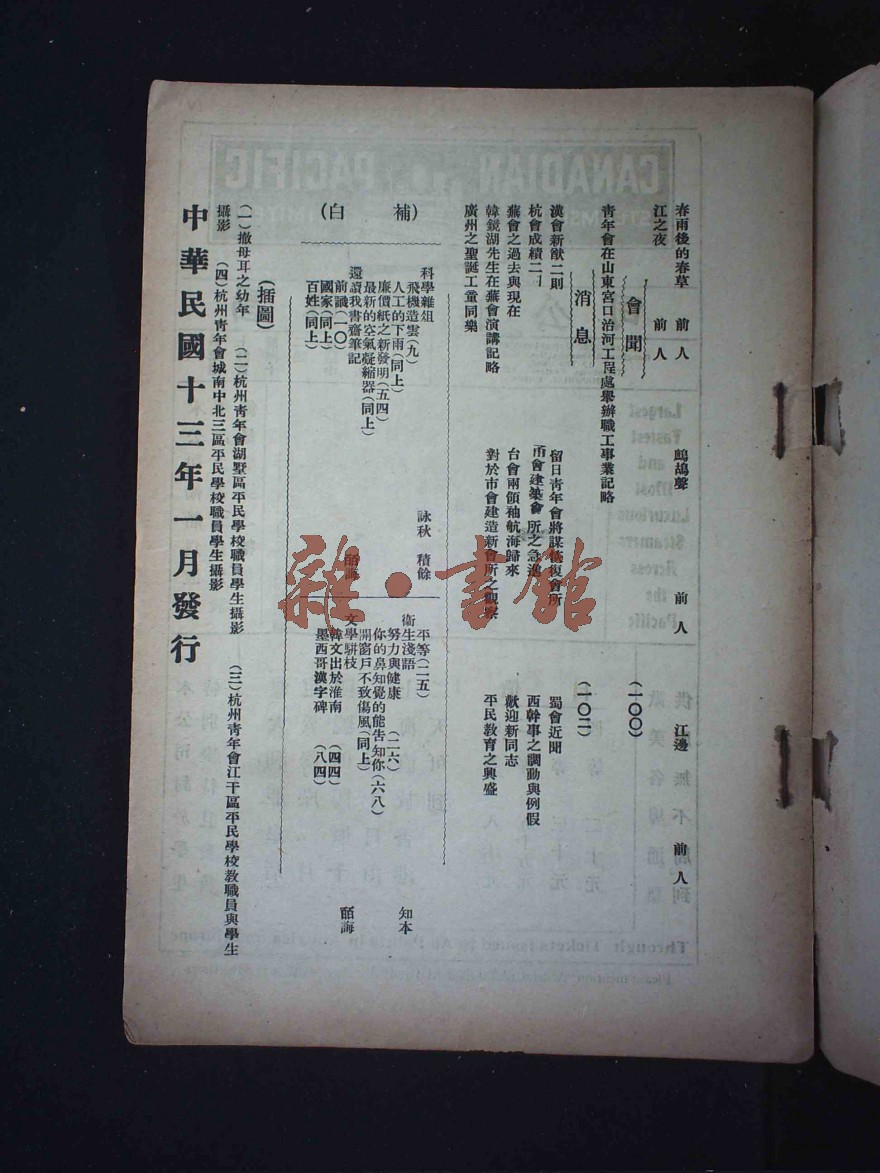 春雨後的春草 前人
鷓鴣聲 前人
江邊 前人
江之夜 前人
會聞
青年會在山東宮口治河工程處舉辦職工事業記略 (一〇〇)
消息 (一〇二)
漢會新猷二則
留日青年會將謀恢復會所
蜀會近聞
杭會成績二一
甬會建築會所之急進
西幹事之調動與例假
蕪會之過去與現在
台會兩領袖航海歸來
歡迎新同志
韓鏡湖先生在蕪會演講記略
對於市會建造新會所之
平民教育之興盛
廣州之聖誕工童同樂
(補白)
科學雜俎 詠秋 積餘
飛機造雲(九)
人工的下雨(同上)
廉價紙之新發明(五四)
最新的空氣凝縮器(同上)
還讀我書齋筆記 皕誨
前讖(一〇)
國家(同上)
百姓(同上)
平等(二五)
衛生淺語 知本
努力與健康 (二六)
你的鼻知覺的能告知你(六八)
開窗戶不致傷風(同上)
文學駢枝 皕誨
韓文出於淮南 (四四)
墨西哥漢字碑 (八四)
(插圖)
(一)撒母耳之幼年 (二)杭州青年會湖墅區平民學校職員學生攝影 (三)杭州青年會江干區平民學校教職員與學生
攝影 (四)杭州青年會城南中北三區平民學校職員學生攝影
中華民國十三年一月發行
雜·書館
CANADIAN PACIFIC
Largest
Fastest
and
Most
Luxurious
Steamers
Across
the
Pacific